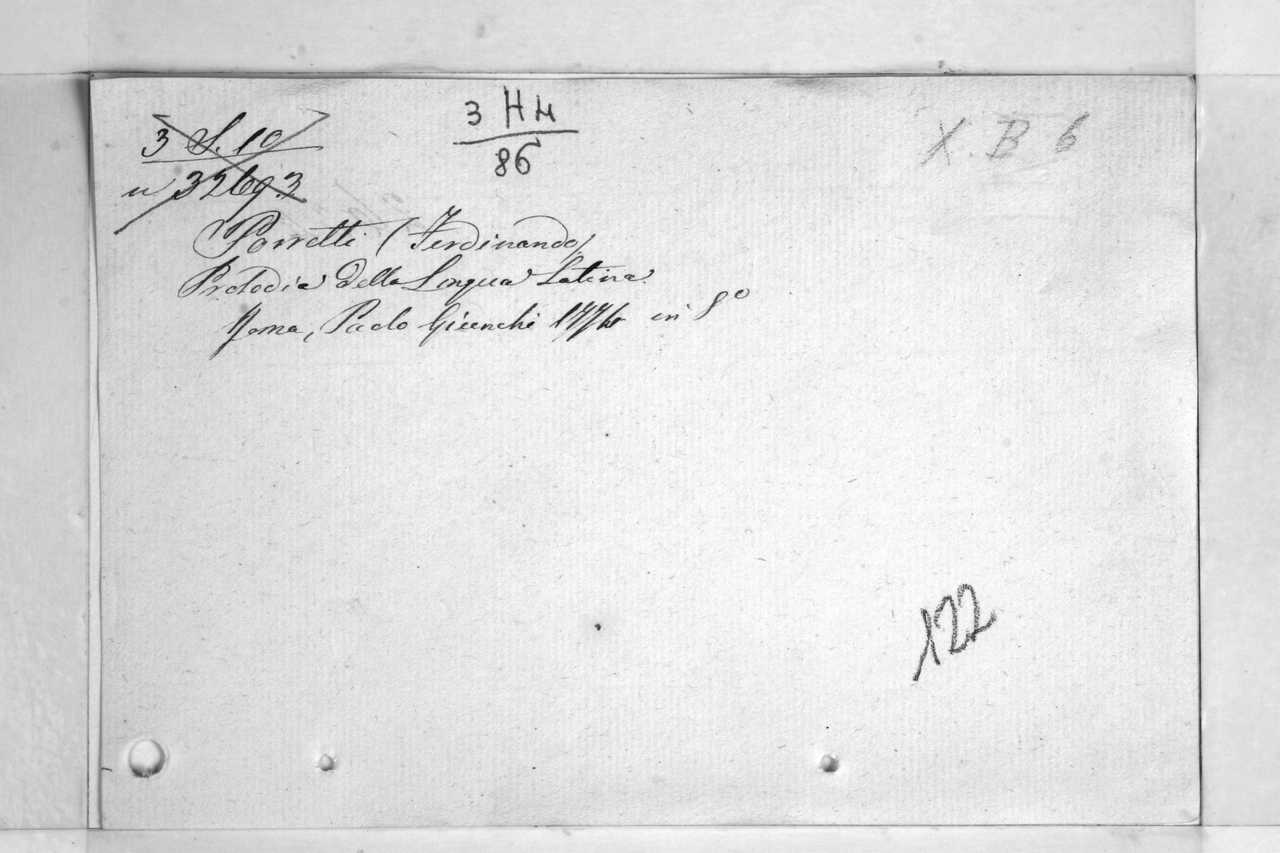 3 S. 10
n 32693
3 H 4
86
X. B 6
Porretti (Ferdinando)
Prosodia della Lingua Latina
Roma, Paolo Giunchi 1774 in 8º
122